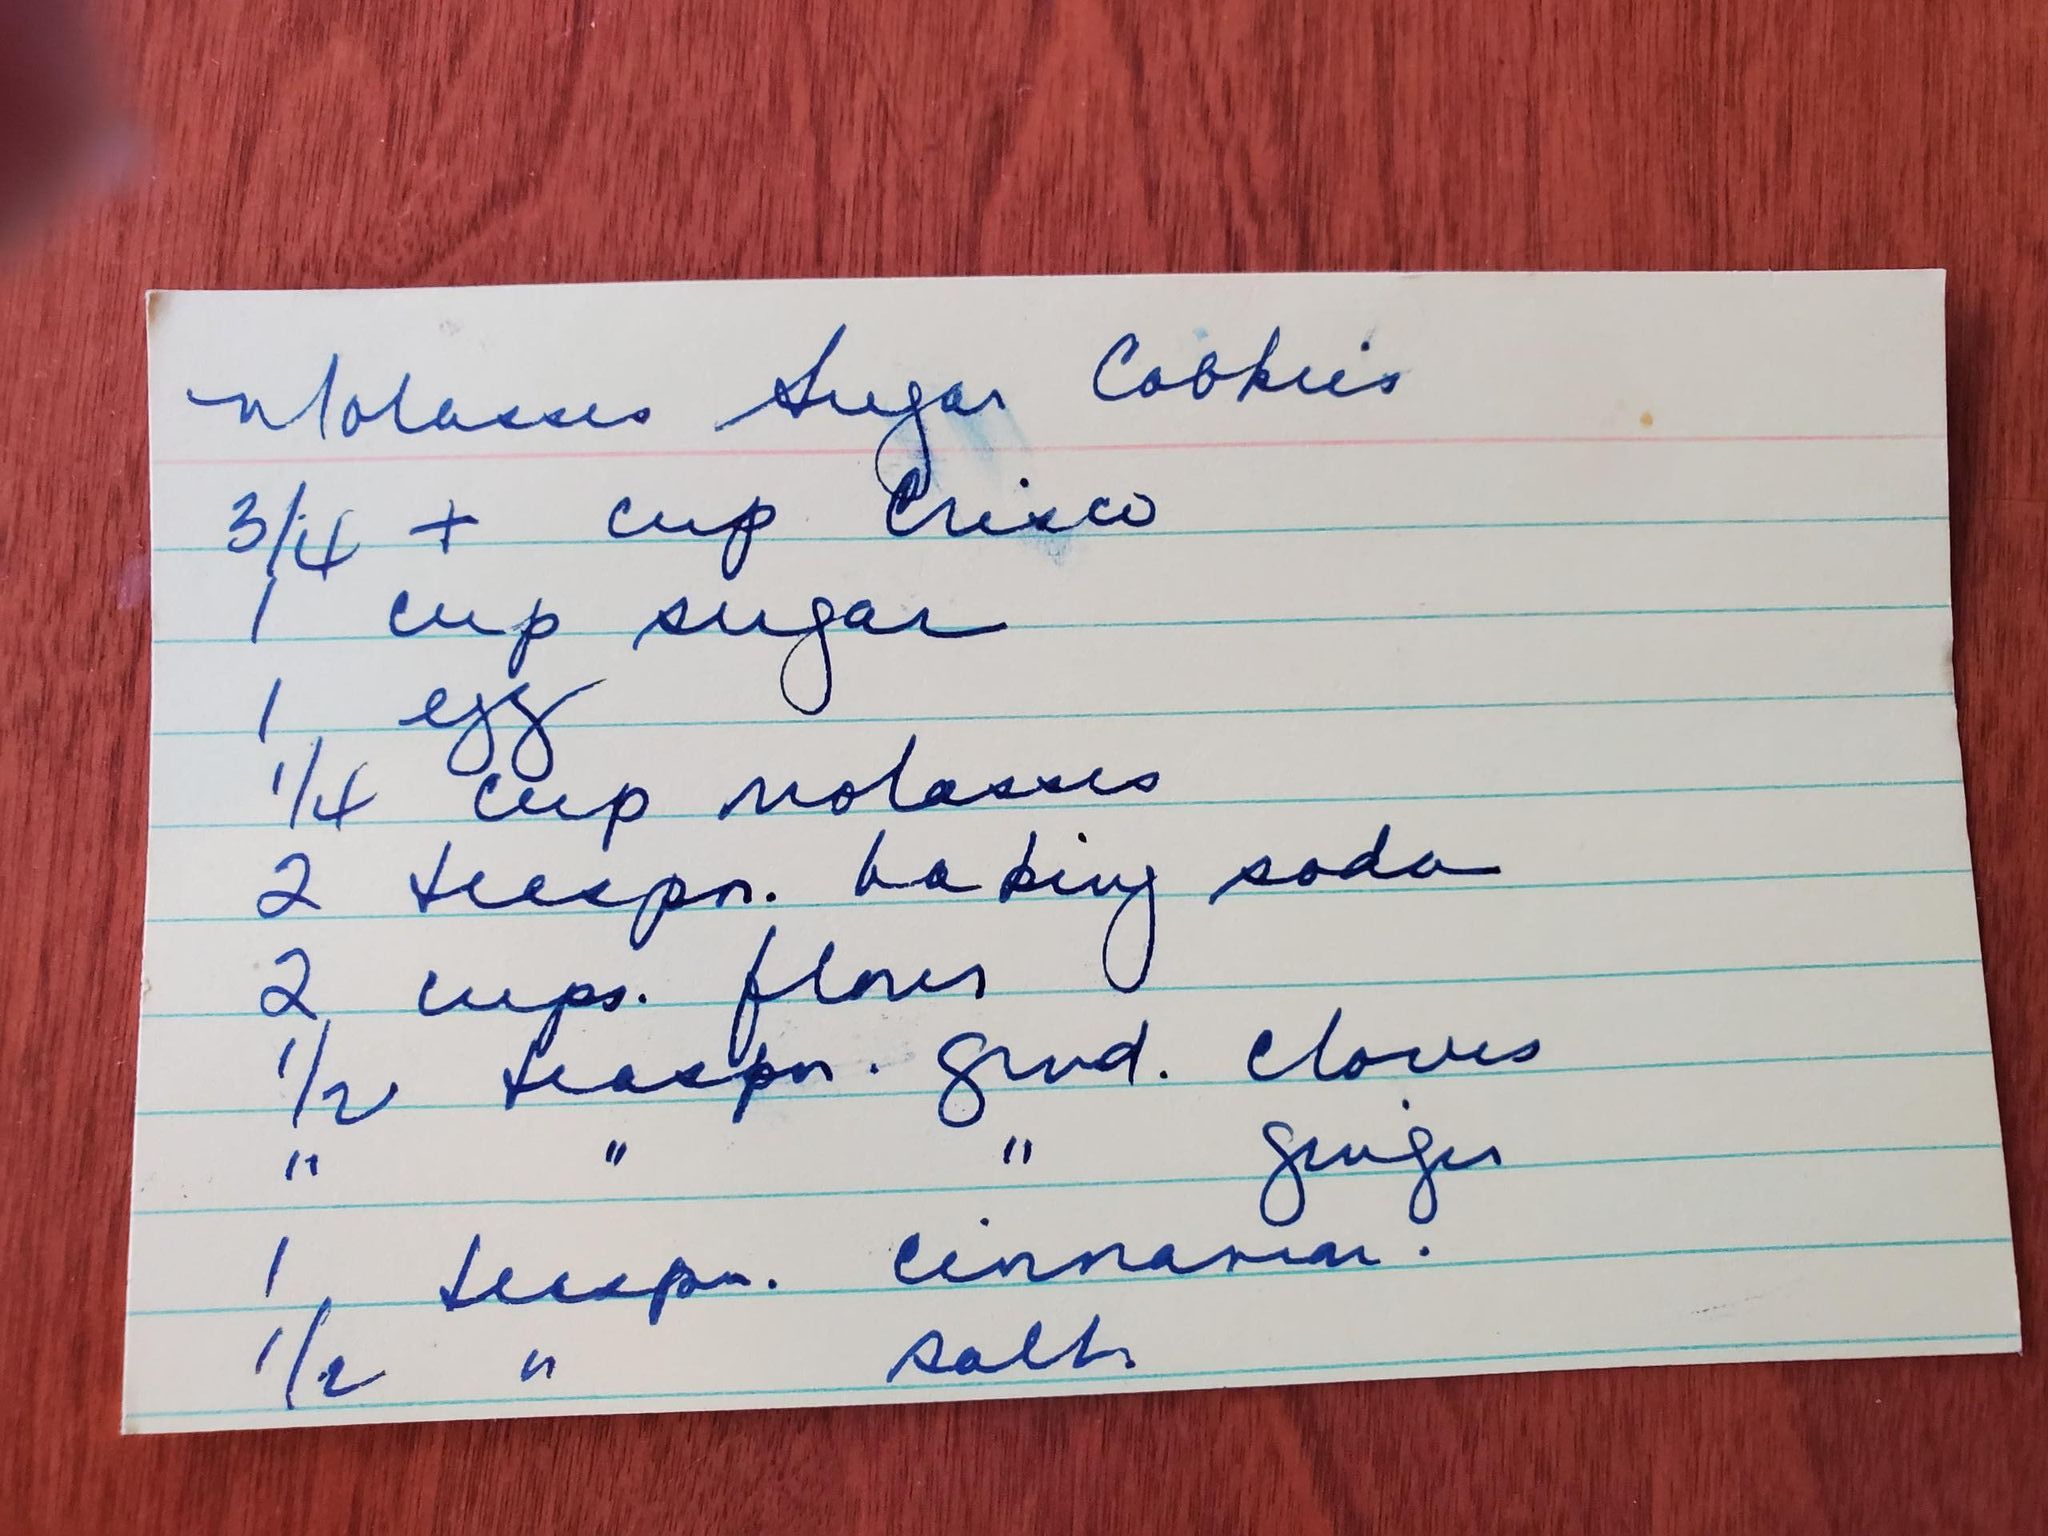 Molasses Sugar Cookies
3/4 + cup Crisco
1 cup sugar
1 egg
1/4 cup molasses
2 teaspn. baking soda
2 cups. flour
1/2 teaspn. grnd. cloves
" " " ginger
1 teaspn. cinnamon.
1/2 " salt